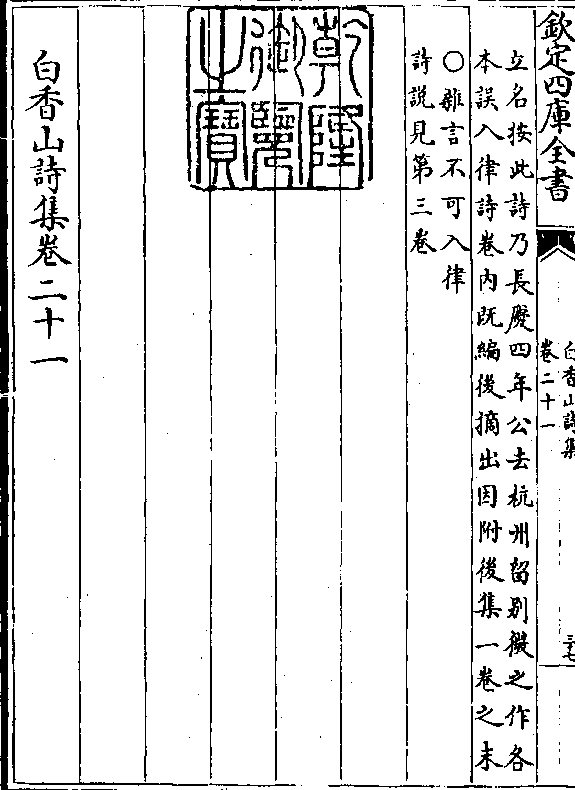 欽定四庫全書
白香山詩集
卷二十一
三七
立名按此詩乃長慶四年公去杭州留别微之作各
本誤入律詩卷内既編後摘出因附後集一卷之末
○雜言不可入律
詩說見第三卷
乾隆
御覽
之寶
白香山詩集卷二十一